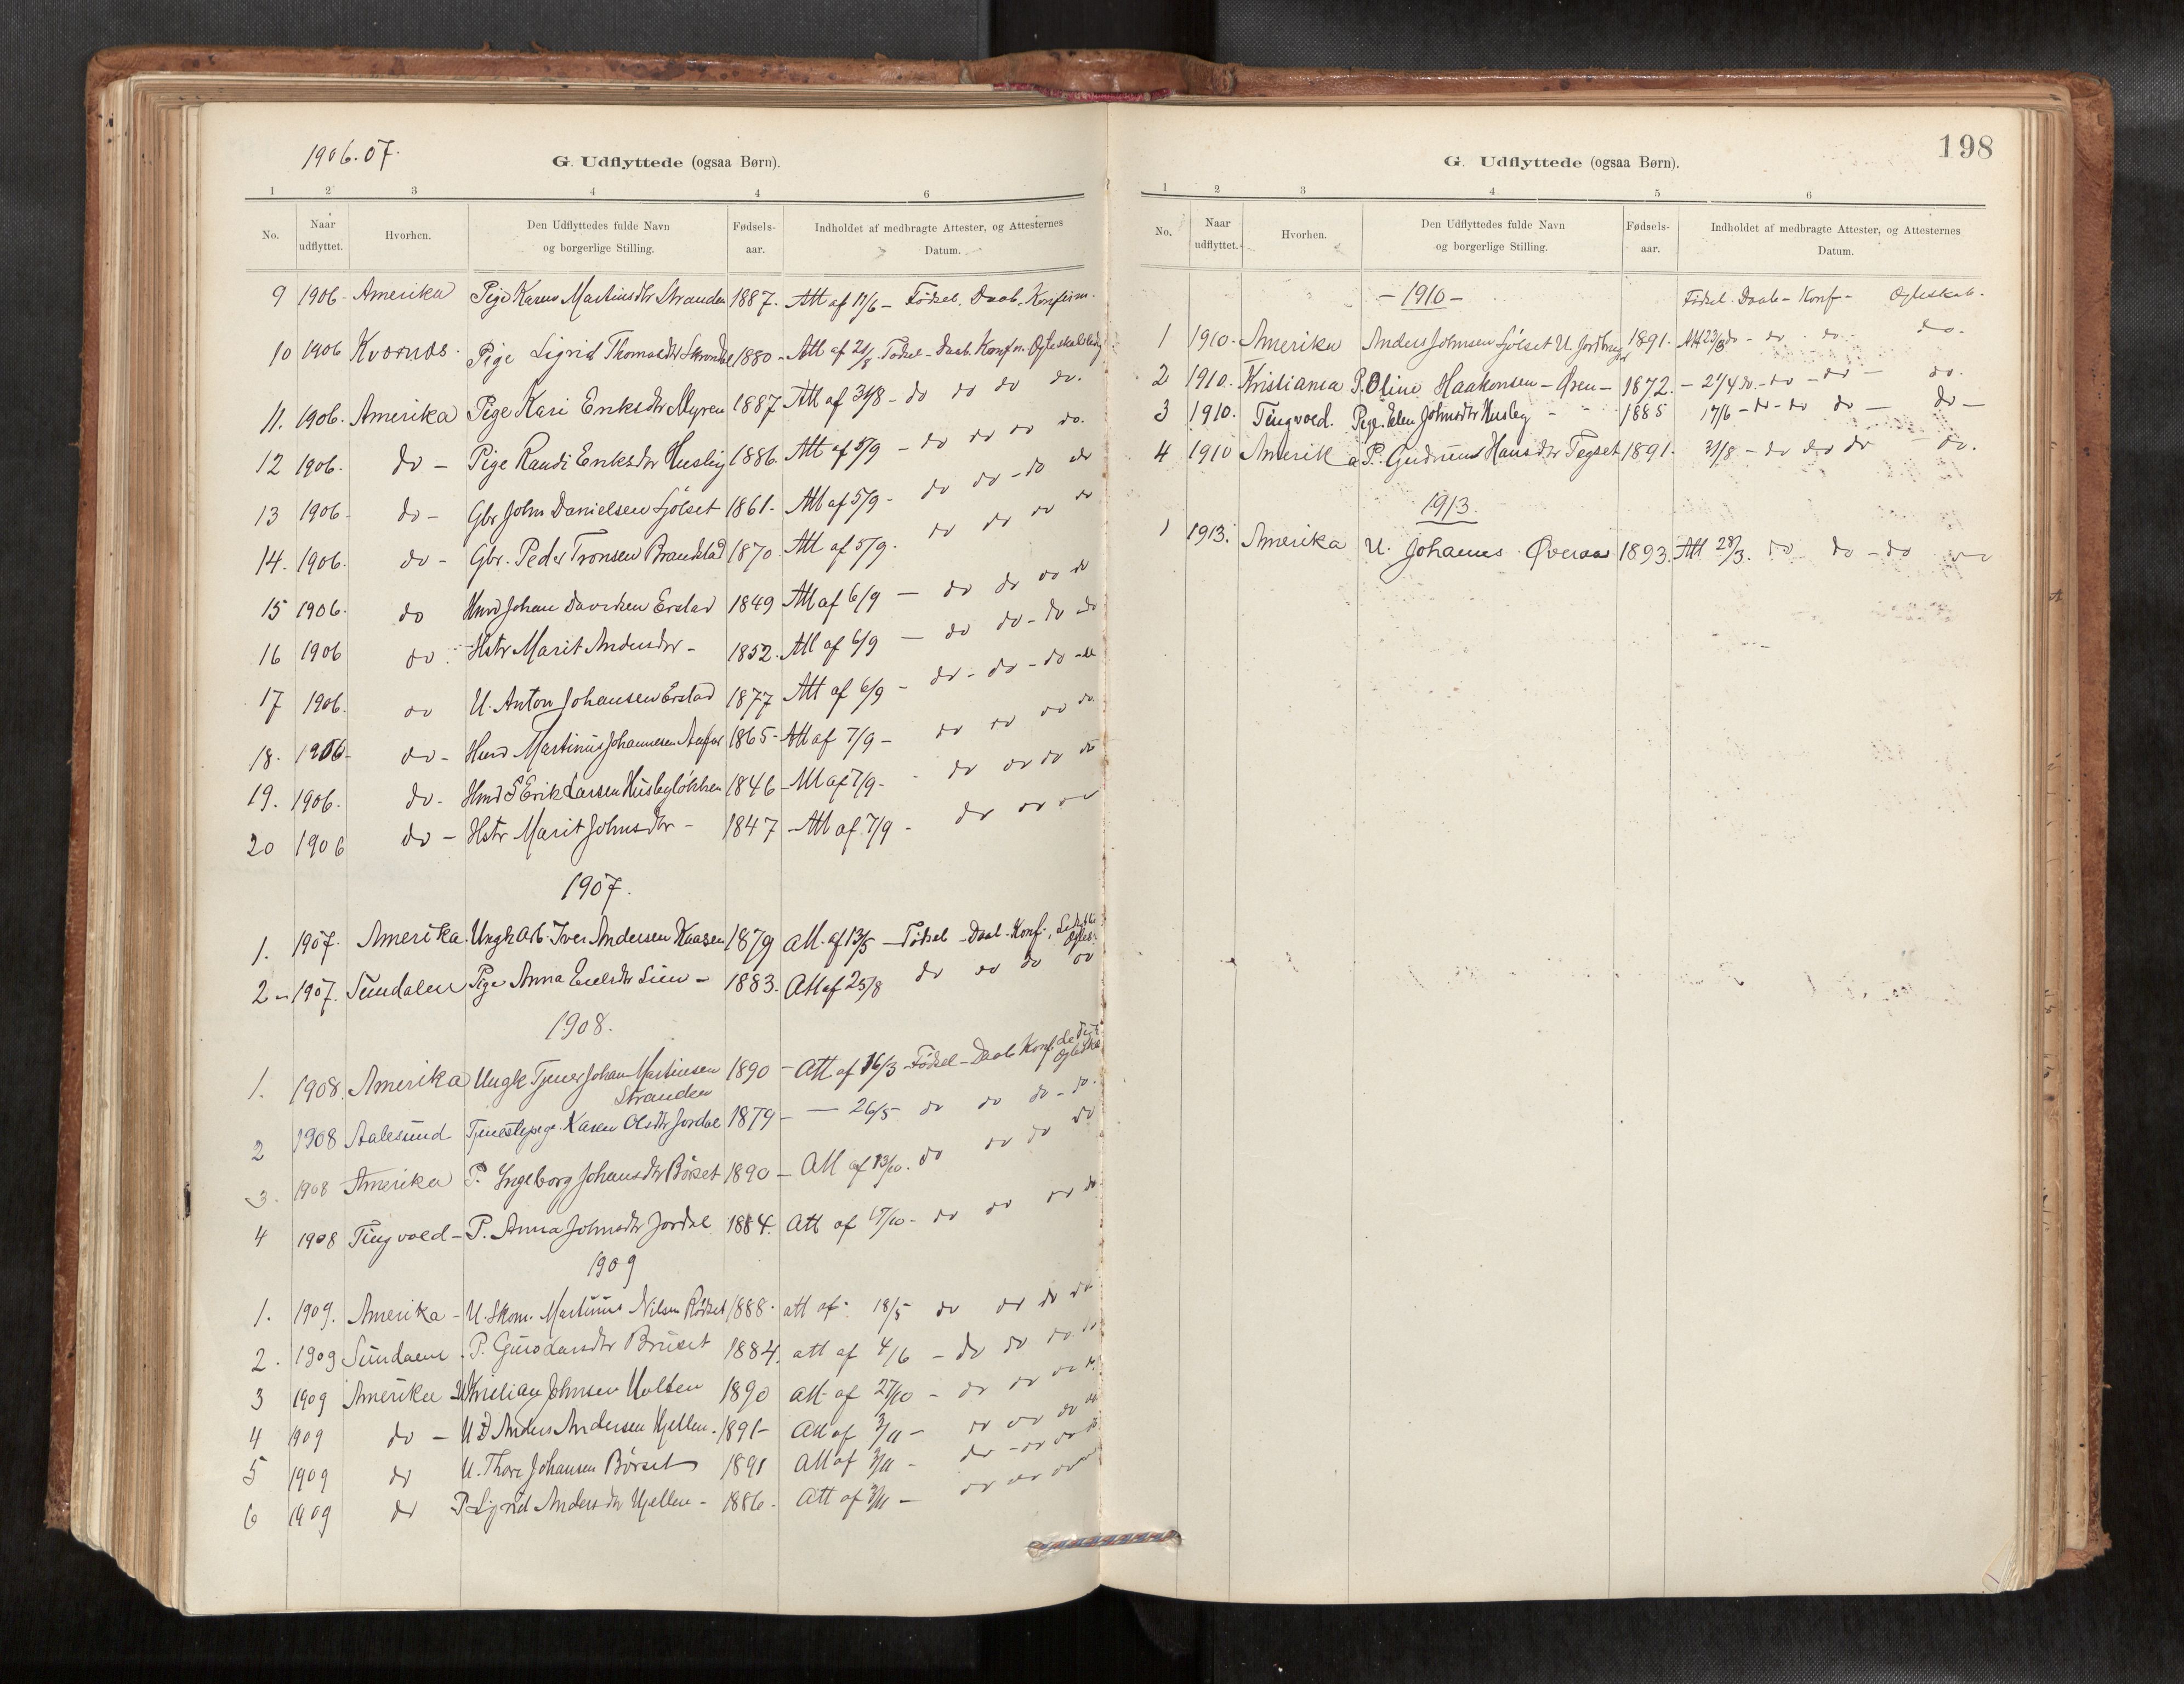 1906.07.
G. Udflyttede (ogsaa Børn).
1 2 3 4 4 6
No. Naar udflyttet. Hvorhen. Den Udflyttedes fulde Navn og borgerlige Stilling. Fødsels-aar. Indholdet af medbragte Attester, og Attesternes Datum.
9 1906- Amerika Pige Karen Martinsdtr Stranden 1887. Att af 11/6 - Fødsel. Daab. Konfirm.
10 1906 Kvornes. Pige Sigrid Thomasdtr 1880 - Att af Fødsel - Daab. Konfn.
11. 1906. Amerika Pige Kari Eriksdtr Myren 1887 Att af 31/8 - do do do do.
12 1906. do - Pige Randi Eriksdtr Husby 1886. Att af 5/9 - do do do do.
13 1906- do - Gbr John Danielsen Sjölset 1861- Att af 5/9 - do do - do do
14. 1906. do - Gbr. Peder Tronsen Brandstad 1870. Att af 5/9. do do do do
15 1906. do Hmd Johan Davidsen Erstad 1849 Att af 6/9 - do do do do
16 1906 do Hstr Marit Andersdtr - 1852. Att af 6/9 - do do - do do
17 1906. do U. Anton Johansen Erstad 1877 Att af 6/9 - do - do - do - do
18. 1906- do - Hmd Martinus Johannesen 1865- Att af 7/9 - do do do do.
19. 1906. do - Hmd Erik Larsen Husbyløkken 1846 - Att af 7/9 - do do do do
20 1906 do - Hstr Marit Johnsdtr - 1847 - Att af 7/9 - do do do
1907.
1. 1907. Amerika. Ungk Arb. Iver Andersen Kaasen 1879 Att. af 13/5 - Fødsel - Daab - Konf.,
2 - 1907. Sundalen Pige Anna - 1883. Att af 25/8 do do do do
1908.
1. 1908. Amerika Ungk Tjener Johan Martinsen 1890 - Att af 16/3 - Fødsel - Daab Konf.
Stranden
2 1908 Aalesund Tjenestepige Karen Olsdtr Jordal 1879 - - 26/5 do do do - do.
3. 1908 Amerika P. Ingeborg Johansdtr Børset 1890 - Att af 13/10. do do do do
4 1908 Tingvold - P. Anna Johnsdtr Jordal 1884. Att af 17/10 - do do do do
1909
1. 1909. Amerika - U. Skom. Martinus Nilsen Rødset 1888. att af 18/5 do do do do
2. 1909 Sundalen P. Guro Larsdtr Bruset 1884. att af 4/6 - do do do do
3 1909 Amerika U Kristian Johnsen Holten 1890 att af 27/10 - do do do do
4 1909 do - U Anders Andersen Hjellen. 1891- Att af 3/11 - do do do do
5 1909 do U. Thore Johansen Børset 1891 Att af 3/11 - do - do do do
6 1909 do P Sigrid Andersdtr Hjellen - 1886. Att af 3/11 - do do do
198
G. Udflyttede (ogsaa Børn).
1 2 3 4 5 6
No. Naar udflyttet. Hvorhen. Den Udflyttedes fulde Navn og borgerlige Stilling. Fødsels-aar. Indholdet af medbragte Attester, og Attesternes Datum.
- 1910 - Fødsel. Daab - Konf - Ogteskab.
1 1910. Amerika Anders Johnsen Sjölset U. 1891. Att 23/3 do - do - do - do.
2 1910. Kristiania P. Oline Haakonsen - Øren - 1872. - 21/4 do. - do - do - do.
3 1910. Tingvold. Pige. Elen Johnsdtr Husby - 1885 17/6 - do - do do - do -
4 1910 Amerika P. Gudrun Hansdtr Tegset 1891. 31/8 - do do do - do.
1913.
1 1913. Amerika U. Johannes Øveraa 1893. Att 28/3. do do - do do